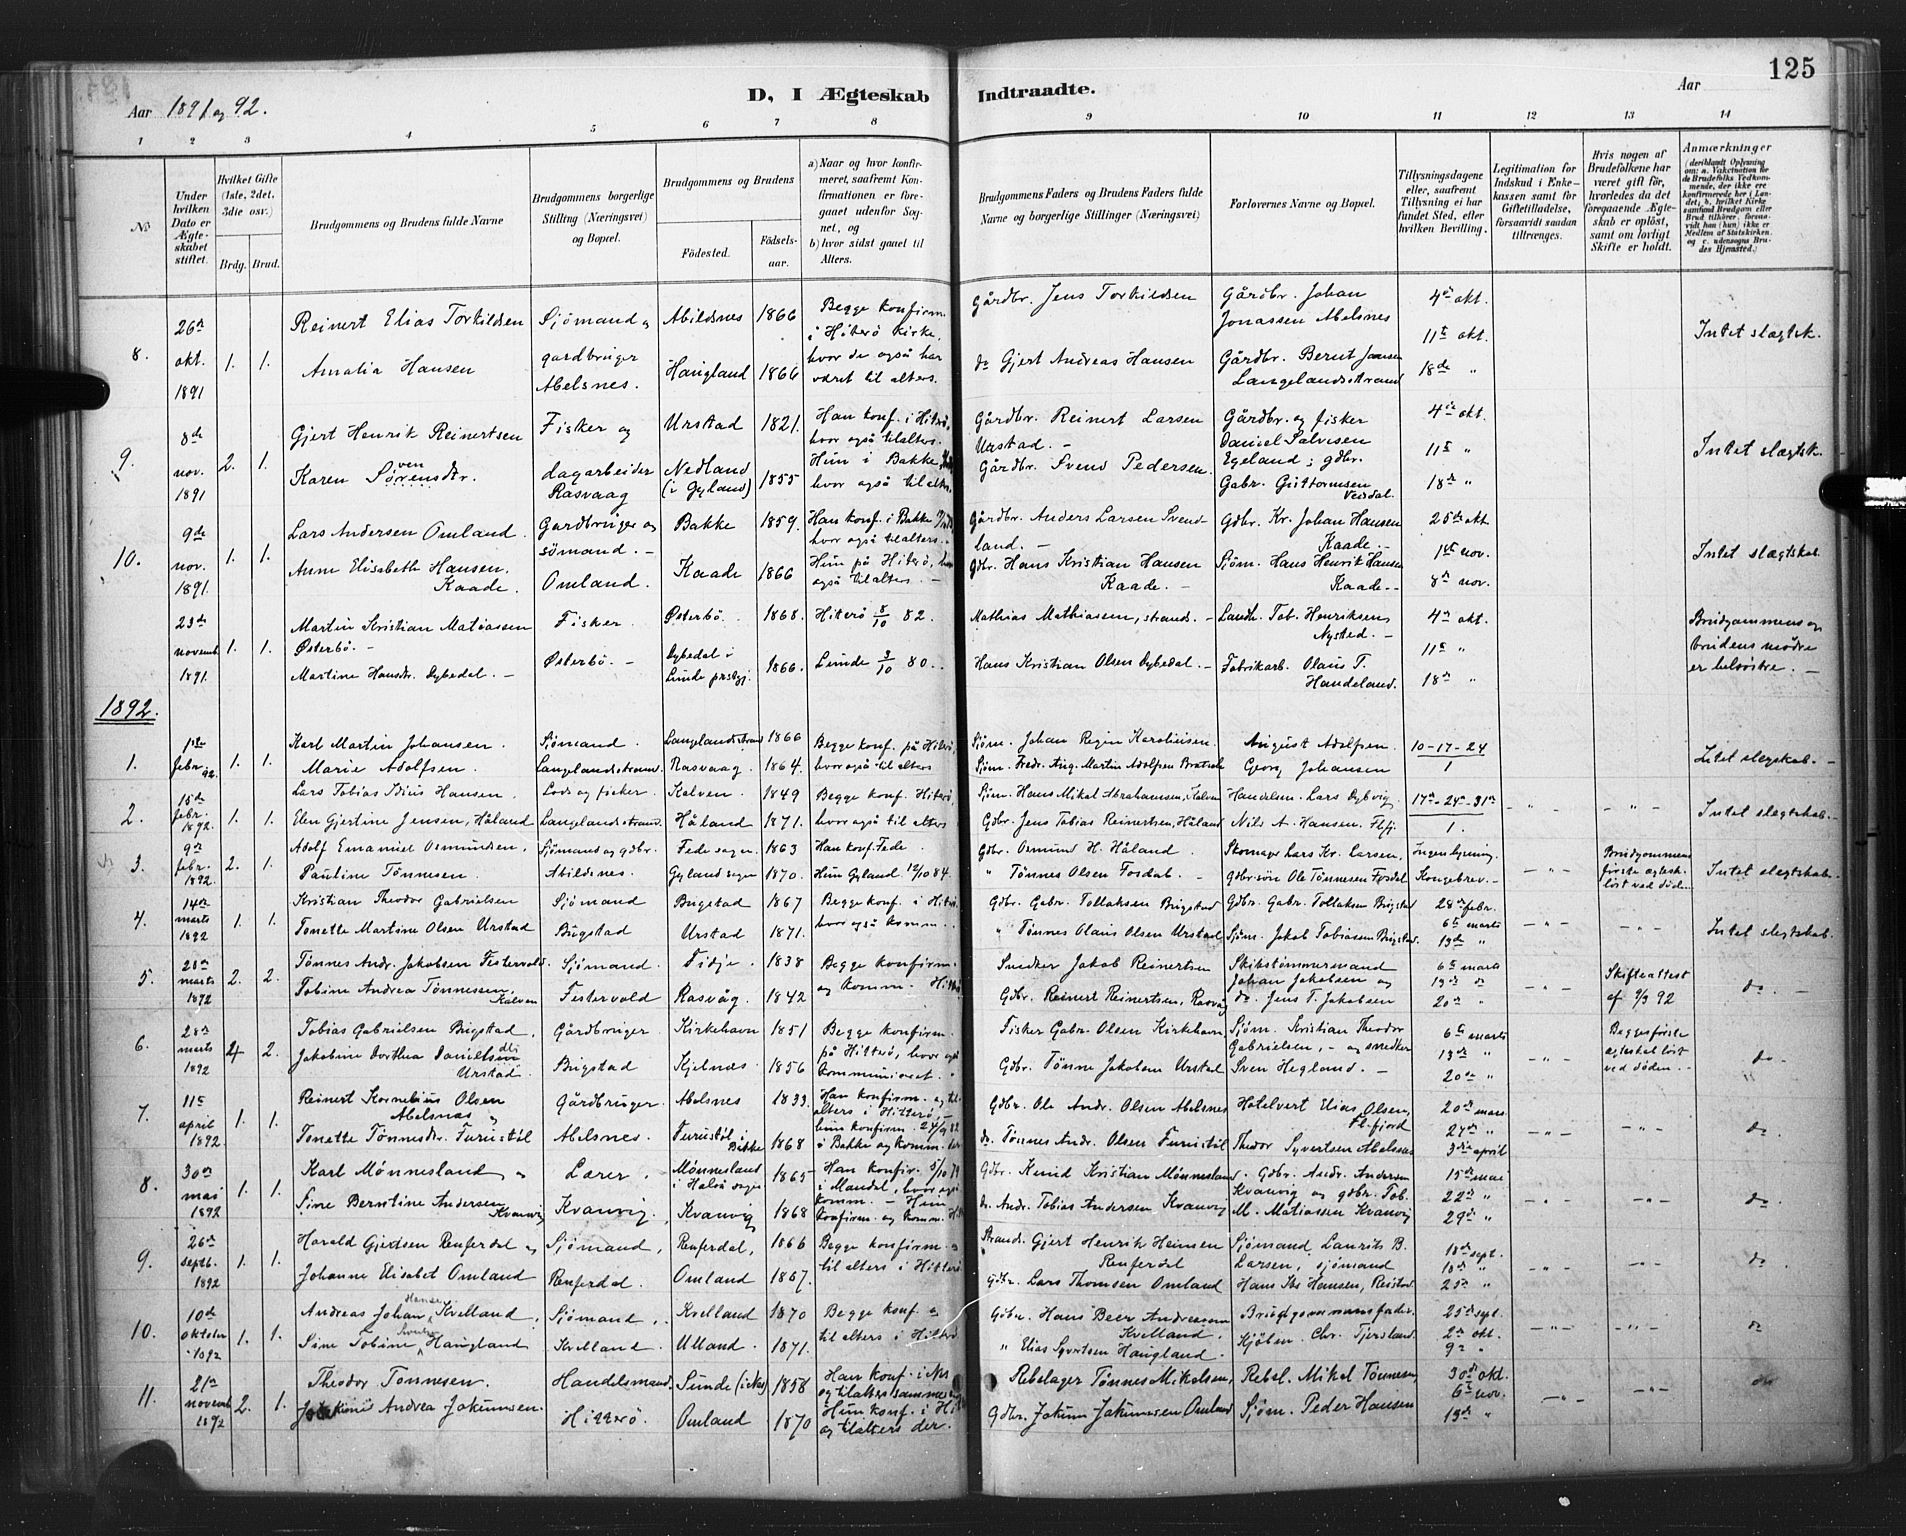 125
Aar 1891 og 92.
D, I Ægteskab Indtraadte.
Aar
1 2 3 4 5 6 7 8 9 10 11 12 13 14
No
Under hvilken Dato er Ægteskabet stiftet.
Hvilket Gifte (1ste, 2det, 3die osv.)
Brdg. Brud.
Brudgommens og Brudens fulde Navne
Brudgommens borgerlige Stilling (Næringsvei) og Bopæl.
Brudgommens og Brudens
Fødested. Fødselsaar.
a) Naar og hvor konfirmeret, saafremt Konfirmationen er foregaaet udenfor Sognet, og
b) hvor sidst gaaet til Alters.
Brudgommens Faders og Brudens Faders fulde Navne og borgerlige Stillinger (Næringsvei)
Forlovernes Navne og Bopæl.
Tillysningsdagene eller, saafremt Tillysning ei har fundet Sted, efter hvilken Bevilling.
Legitimation for Indskud i Enkekassen samt for Giftetilladelse, forsaavidt saadan tiltrænges.
Hvis nogen af Brudefolkene har været gift før, hvorledes da det foregaaende Ægteskab er opløst, samt om lovligt Skifte er holdt.
Anmærkninger
(deriblandt Oplysning om: a. Vakcination for de Brudefolks Vedkommende, der ikke ere konfirmerede her i Landet, b. hvilket Kirkesamfund Brudgom eller Brud tilhører, forsaavidt han (hun) ikke er Medlem af Statskirken og c. udensogns Brudes Hjemsted.)
8. 26de okt. 1891 1. 1.
Reinert Elias Torkildsen Sjömand og Abildsnes 1866 Begge konfirm. i Hiterö kirke, Gårdbr. Jens Torkildsen Gårdbr. Johan Jonassen Abelsnes 4de okt. Intet slægtsk.
Amalia Hansen gardbruger Abelsnes. Haugland 1866 hvor de også har været til alters. do Gjert Andreas Hansen Gårdbr. Bernt Jansen Langelandsstrand 11te okt. 18de "
9. 8de nov. 1891 2. 1.
Gjert Henrik Reinertsen Fisker og Urstad 1821. Han konf. i Hiterö, hvor også til alters. Gårdbr. Reinert Larsen Urstad. - Gårdbr. og fisker Daniel Salvesen Egeland; gdbr. 4de okt. Intet slægtsk.
Karen Sörensdtr. dagarbeider Rasvaag Nedland (i Gyland) 1855 Hun i Bakke, hvor også til alters. Gårdbr. Svend Pedersen. Gabr. Guttormsen 11te " 18de "
10. 9de nov. 1891. 1. 1.
Lars Andersen Omland. Gardbruger og sömand. - Bakke 1859. Han konf. i Bakke hvor også til alters. Gårdbr. Anders Larsen Svendland. - Gdbr. Kr. Johan Hansen Kaade. - 25de okt. Intet slægtskab.
Anne Elisabeth Hansen, Kaade. Omland. Kaade 1866 Hun på Hiterö, hvor også til alters. - Gdbr. Hans Kristian Hansen Kaade. - Sjöm. Hans Henrik Hansen Kaade. - 1ste nov. 8de nov.
23de novemb. 1891. 1. 1.
Martin Kristian Matiassen Østerbö. - Fisker. Østerbö. 1868. Hiterö 8/10 82. Mathias Mathiassen, strands. - Landh. Tob. Henriksen Nysted. - 4de okt. Brudgommens og brudens mödre er halvsöstre. -
Martine Hansdtr. Dybedal. - Østerbö. - Dybedal i Lunde prstgj. 1866. Lunde 3/10 80. Hans Kristian Olsen Dybedal. - Fabrikarb. Olaus T. Handeland. 11te " 18de "
1892.
1. 1ste febr. 92. 1. 1.
Karl Martin Johansen. Sjömand. Langelandsstrand 1866 Begge konf. på Hiterö, Sjöm. Johan Regin Karolinsen. August Adolfsen. 10-17-24 Intet slegskab. -
Marie Adolfsen. Langelandsstrand. Rasvaag. 1864. hvor også til alters Sjöm. Fredr. Aug. Martin Adolfsen Georg Johansen 1
2. 15de febr. 1892. 1. 1.
Lars Tobias Idius Hansen. Lods og fisker. Kalven. 1849 Begge konf. Hiterö, Sjöm. Hans Mikal Abrahamsen, Kalven Handelsm. Lars Dybvig. 17de-24-31te -"- -"- Intet slegtskab. -
Elen Gjertine Jensen, Håland Langelandsstrand. Håland 1871. hvor også til alters Gdbr. Jens Tobias Reinertsen, Håland Nils A. Hansen. Flfj. 1.
3. 9de febr. 1892. 2. 1.
Adolf Emanuel Osmundsen. Sjömand og gdbr. Fede sogn. 1863 Han konf. Fede. Gdbr. Osmund H. Håland. Skomager Lars Kr. Larsen, Ingen lysning. -"- Brudgommens förste ægtesk. löst ved döden. Intet slegtskab.
Pauline Tönnesen. Abildsnes. Gyland sogn 1870. Hun Gyland 12/10 84. " Tönnes Olsen Fosdal. - Gdbrsön Ole Tönnesen Fosdal Kongebrev. -
4. 14de marts 1892 1. 1.
Kristian Theodor Gabrielsen Sjömand Bugstad 1867 Begge konf. i Hiterö Gdbr. Gabr. Tollaksen Brigstad Gdbr. Gabr. Tollaksen Brigstad 28de febr. -"- -"- Intet slegtskab.
Tonette Martine Olsen Urstad Bugstad Urstad 1871. hvor også komm. " Tönnes Olaus Olsen Urstad Sjöm. Jakob Tobiassen Brigstad. 6te marts 13de "
5. marts 1892 2. 2.
Tönnes Andr. Jakobsen Festervold. Sjömand. Fidje. 1838 Begge konfirm. Snedker Jakob Reinertsen Skibstömmermand Johan Jakobsen og 6te marts -"- Skifteattest af 9/3 92 do. -
Tobine Andrea Tönnessen, Kalven Festervold Rasvåg. 1842 og komm. Hiterö Gdbr. Reinert Reinertsen, Rasvåg do. Jens T. Jakobsen 13de do 20de "
6. 28de marts 1892 2. 2.
Tobias Gabrielsen Brigstad, Gårdbruger. Kirkehavn 1851 Begge konfirm. på Hitterö, hvor også Fisker Gabr. Olsen Kirkehavn Sjöm. Kristian Theodor Gabrielsen, - og snedker 6te marts -"- Begges förste ægteskab löst ved döden. - do.
Jakobine Dorthea Danielsen Urstad. Brigstad Kjelnæs. 1856 kommuniceret. Gdbr. Tönne Jakobsen Urstad Sven Hegland. - 13de " 20de "
7. 11te april 1892. 1. 1.
Reinert Kornelius Olsen Abelsnæs og Gårdbruger. Abelsnes 1833. Han konfirm. og til alters i Hitterö, - Gdbr. Ole Andr. Olsen Abelsnes Hotelvert Elias Olsen, Fl.fjord 20de mars -"- -"- do
Tonette Tönnesdtr. Furustöl Abelsnes. Furustöl i Bakke 1868 hun konfirm. 24/9 82 i Bakke og komm. der do. Tönnes Andr. Olsen Furustöl Theodor Syvertsen Abelsnæs 27de " 3die april
8. 30de mai 1892 1. 1.
Karl Mönnesland og Lærer. Mönnesland i Halså sogn 1865 Han konfir. 5/10 79 i Mandal, hvor også komm. - Hun Gdbr. Knud Kristian Mönnesland. Gdbr. Andr. Andersen Kvanvig og gdbr. Tob. 15de mai -"- -"- do
Sine Berntine Andersen Kvanvig Kvanvig. Kvanvig 1868 konfirm. og komm. Hit do. Andr. Tobias Andersen Kvanvig M. Matiassen Kvanvig 22de " 29de "
9. 26de septb. 1892 1. 1.
Harald Gjertsen Renferdal og Sjömand, Renferdal, 1866 Begge konfirm. og Strands. Gjert Henrik Heinsen Renferdal Sjömand Laurits B. Larsen, sjömand sept. -"- -"- do
Johanne Elisabet Omland Renferdal. Omland 1867. til alters i Hitterö. Gdbr. Lars Thomsen Omland Hans Hansen, Reistad 18de " 25de "
10. 10de oktober 1892 1. 1.
Andreas Johan Hansen Kvelland, Sjömand, Kvelland 1870 Begge konf. og Gdbr. Hans Beer Andreassen Kvelland. Brudgommens fader. 25de sept. -"- -"- do
Sine Tobine Haugland Kvelland. Ulland. 1871. til alters i Hitterö " Elias Syvertsen Haugland. Kjöbm. Chr. Tjersland 2de okt. 9de "
11. 21de novemb. 1892 2. 1.
Theodor Tönnesen. Handelsmand. Sunde (i Næs) 1858 Han konf. i Næs og til alters sammesteds Rebslager Tönnes Mikalsen, Rebsl. Mikal Tönnesen, 30de okt. -"- -"- do
Andrea Jokumsen. Hitterö. Omland 1870 Hun konf. i Hi og til alters der. Gdbr. Jokum Jokumsen Omland Sjöm. Peder Hansen 6te nov. 13de "